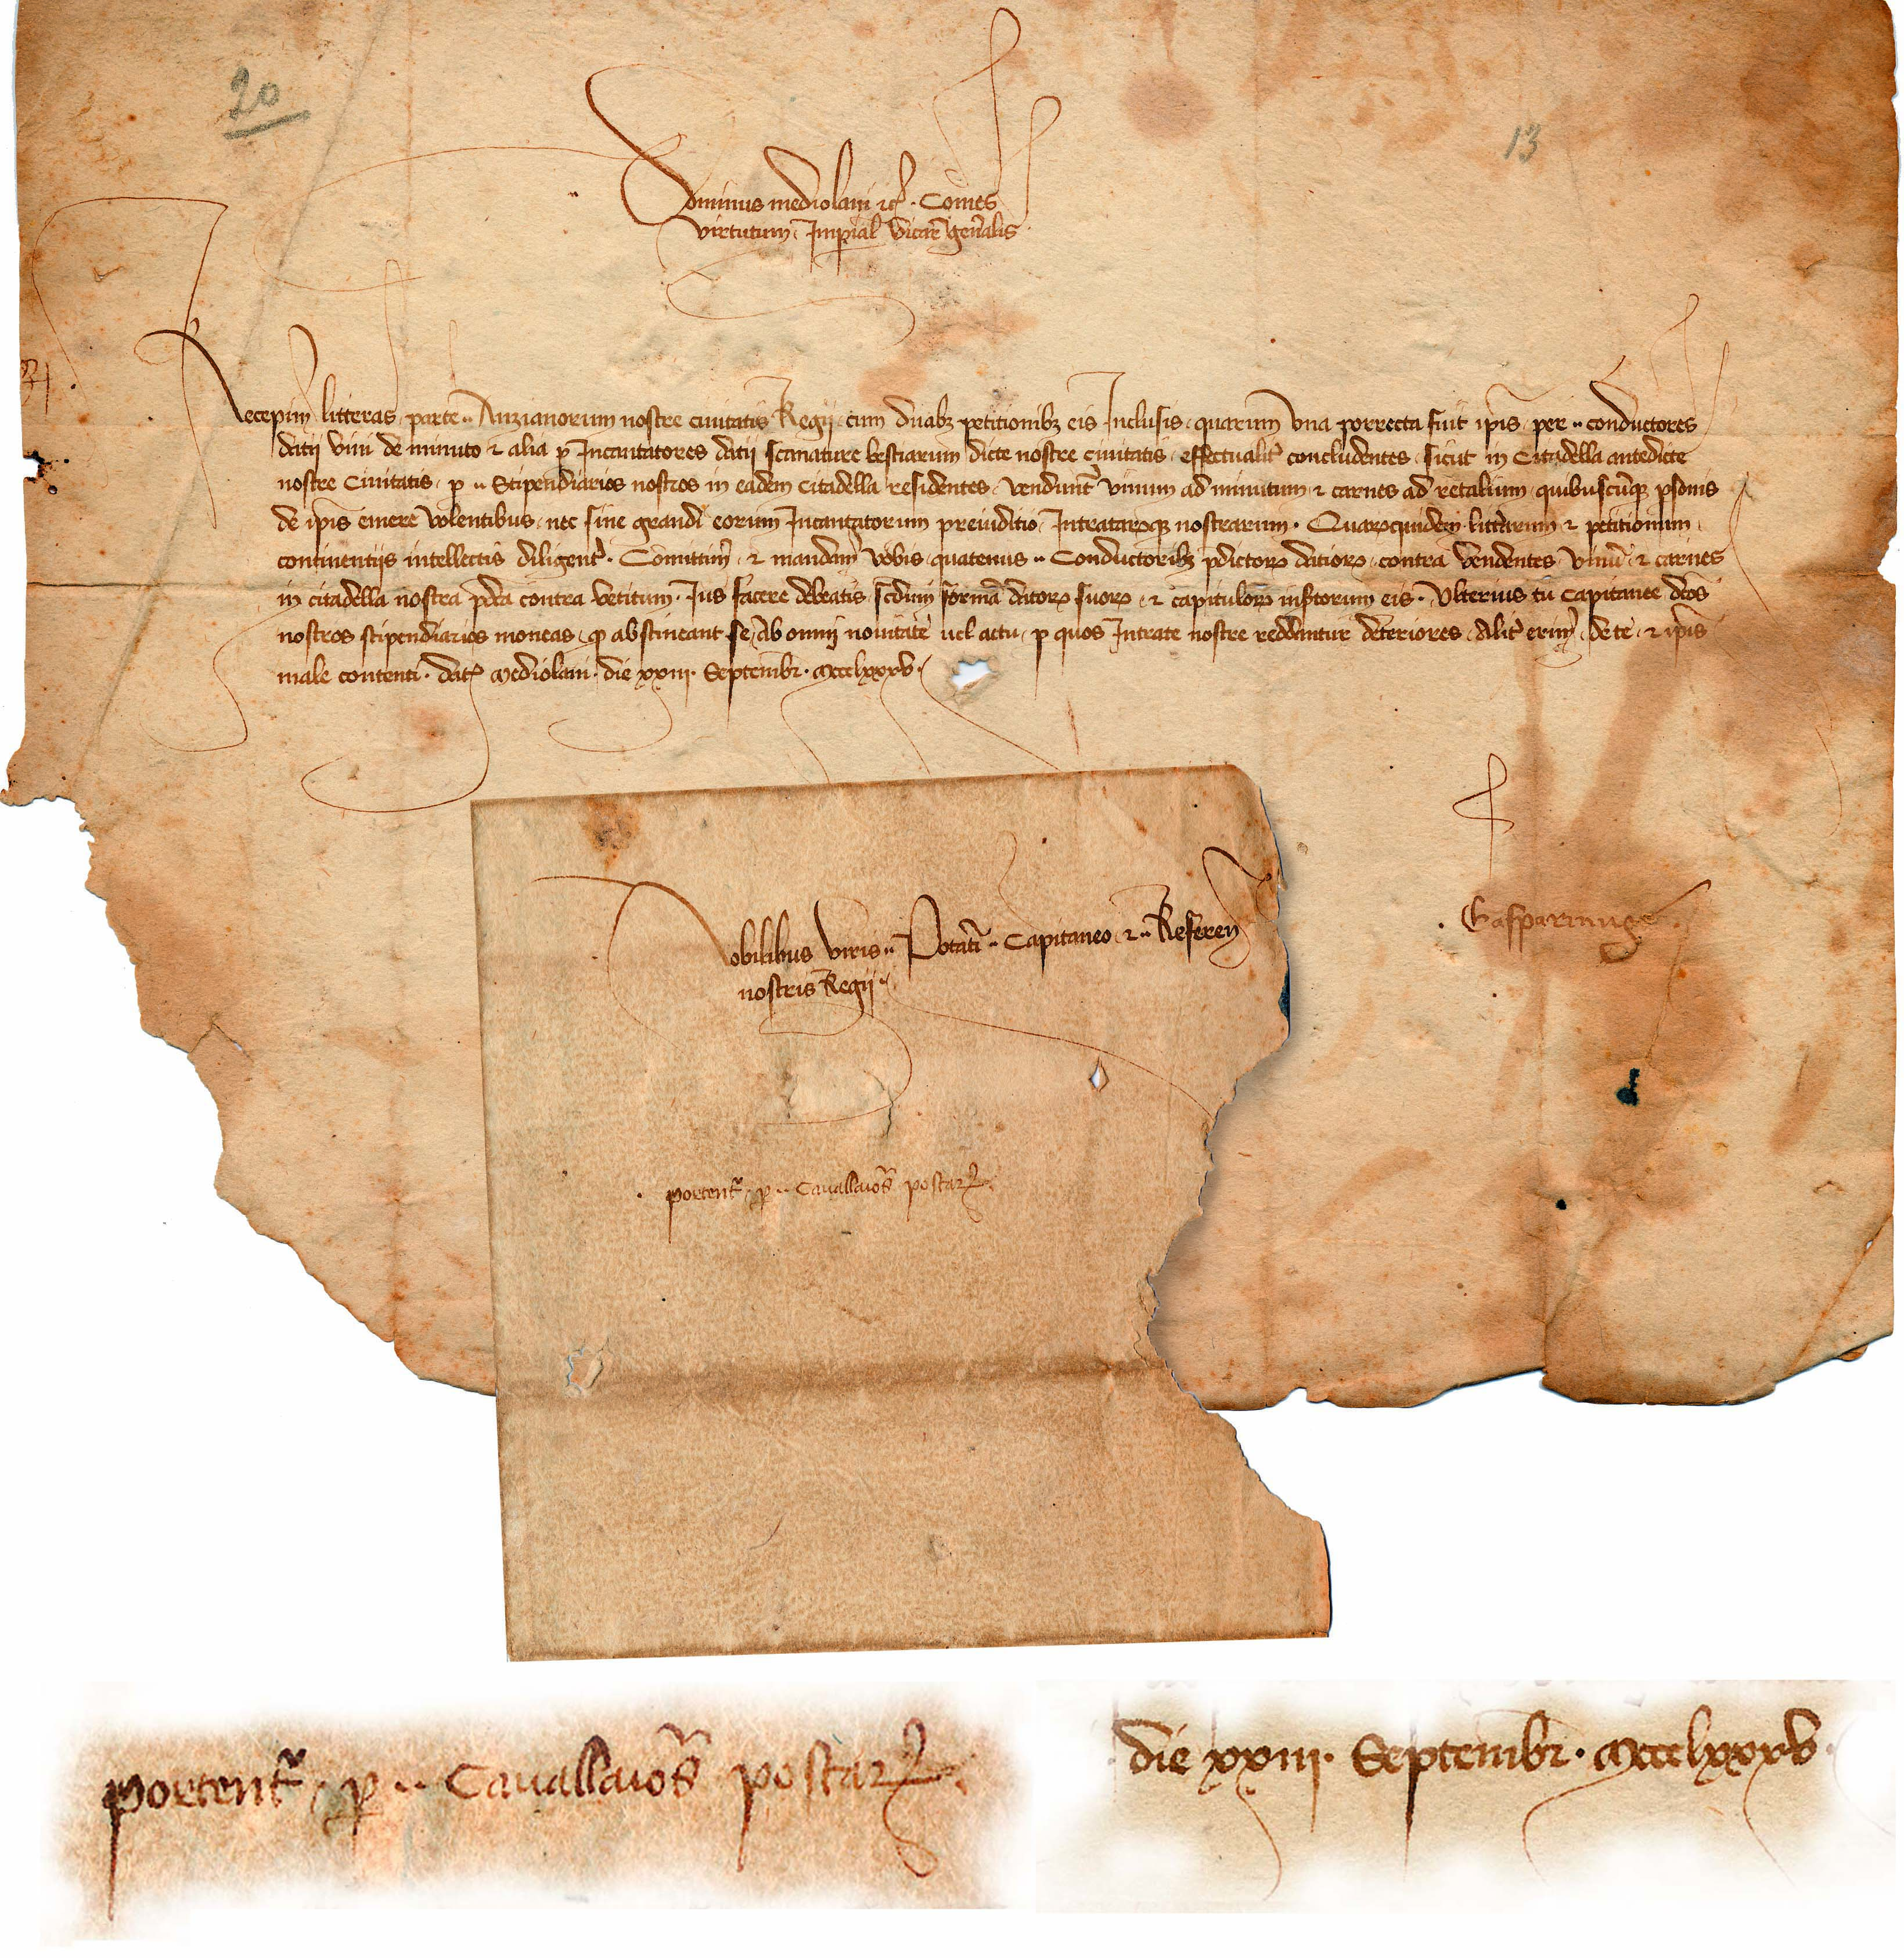 20
13
Dominus mediolani etc. Comes
virtutum Imperial Vicari generalis
Recepim litteras parte .. Anzianorum nostre civitatis Regij cum duabz petitionibz eis Inclusis quarum una porrecta fuit ipis per .. conductores
datij vini de minuto et alia p Incantatores datij scanature bestiarum dicte nostre civitatis effectualit concludentes sicut in Citadella antedicte
nostre Civitatis p .. Stipendiarios nostros in eadem citadella residentes vendunt vinum ad minutum et carnes ad retalium quibuscunqz psonis
de ipis emere volentibus nec sine grandi eorum Incantatorum preiuditio Intratarqz nostrarum. Quarquidem litterarum et petitionum
continentijs intellectis diligent. Comittim et mandam vobis quatenus .. Conductoribz pdictor datior contra vendentes vinu et carnes
in citadella nostra pdca contra vetitum Jus facere debeatis scdum forma dator suor et capitulor eis. Ulterius tu Capitanee dcos
nostros stipendiarios moneas q abstineant se ab omni novitate vel actu p quos Intrate nostre reddantur deteriores Alit erim de te et ipis
male contenti. dat Mediolani die xxiii Septembr. Mccclxxxv.
Gasparinus
Nobilibus viris .. Potati .. Capitaneo et .. Referen
nostris Regij ..
portent p .. Cavallaios postar
portent p .. Cavallaios postar
die xxiii Septembr. Mccclxxxv.